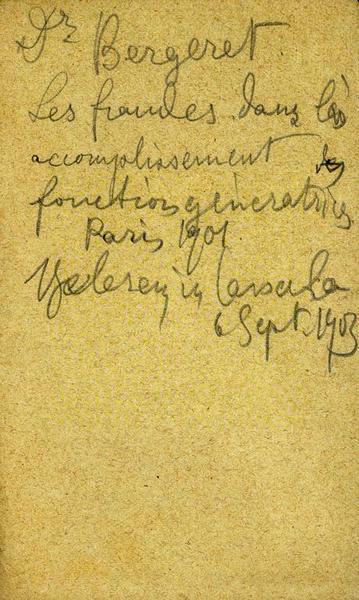 Dr Bergeret
Les fraudes dans les
accomplissement des
fonctions génératrices
Paris, 1901
Gelesen in
6 Sept. 1903